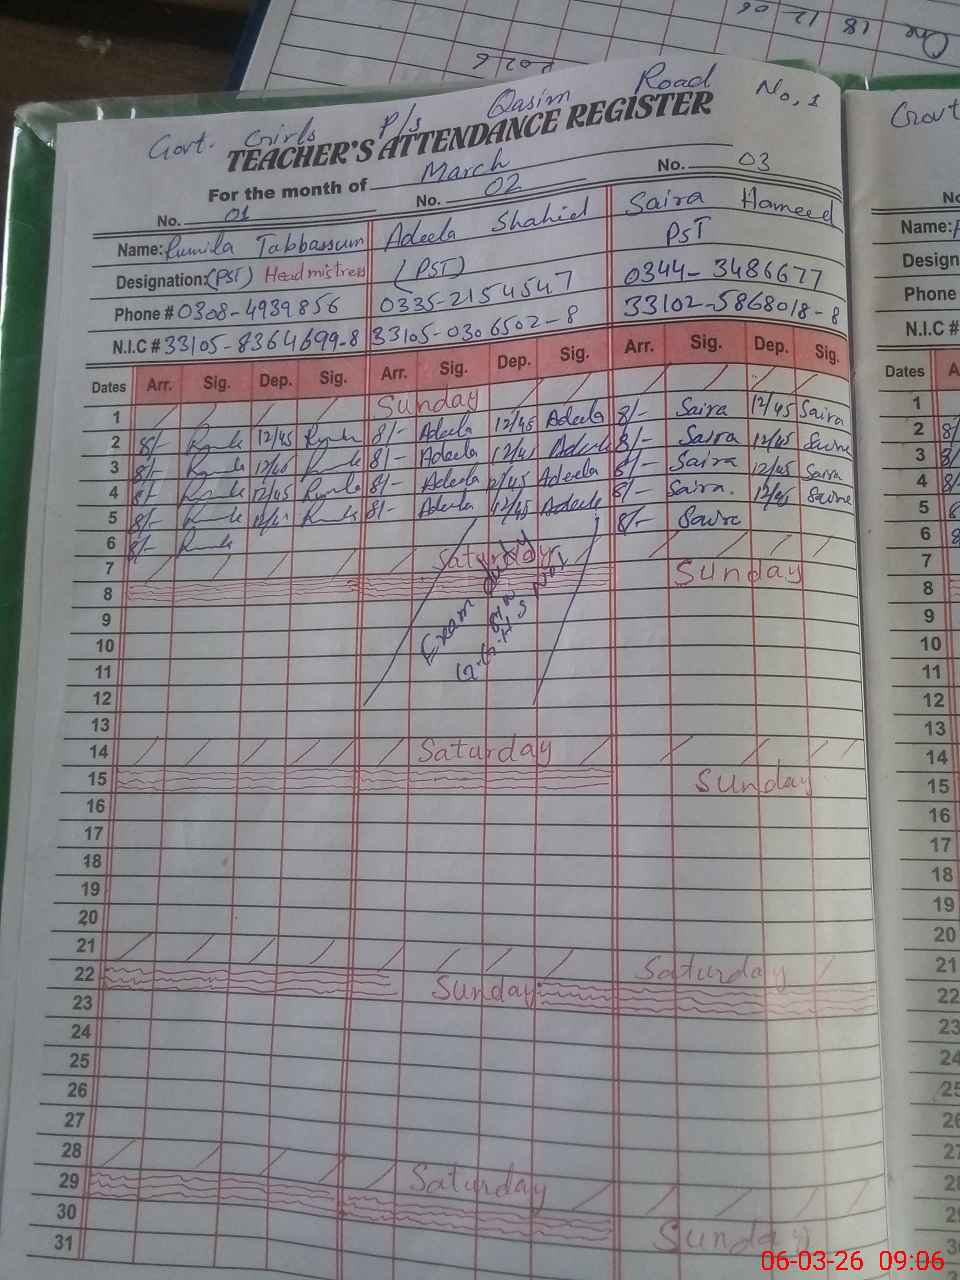 One 18 12 06
2026
Govt. Girls P/s Qasim Road No, 1
TEACHER'S ATTENDANCE REGISTER
For the month of March
No. 01 No. 02 No. 03
Name: Rumila Tabbassum Adeela Shahid Saira Hameed
Designation: (PST) Headmistress (PST) PST
Phone # 0308-4939856 0335-2154547 0344-3486677
N.I.C # 33105-8364699-8 33105-0306502-8 33102-5868018-8
Dates Arr. Sig. Dep. Sig. Arr. Sig. Dep. Sig. Arr. Sig. Dep. Sig.
1 Sunday
2 8/- 12/45 8/- Adeela 12/45 Adeela 8/- Saira 12/45 Saira
3 8/- 12/45 8/- Adeela 12/45 Adeela 8/- Saira 12/45
4 8/- 12/45 8/- Adeela 12/45 Adeela 8/- Saira 12/45 Saira
5 8/- 8/- Adeela 12/45 Adeela 8/- Saira. 12/45
6 8/- Exam duty 8/- Saira
7 Saturday
8 Sunday
9
10
11
12
13
14 Saturday
15 Sunday
16
17
18
19
20
21 Saturday
22 Sunday
23
24
25
26
27
28 Saturday
29 Sunday
30
31
Govt
Name:
Design
Phone
N.I.C #
Dates
1
2 8/
3 8/
4 8/
5 8
6 8
7
8
9
10
11
12
13
14
15
16
17
18
19
20
21
22
23
24
25
26
06-03-26 09:06